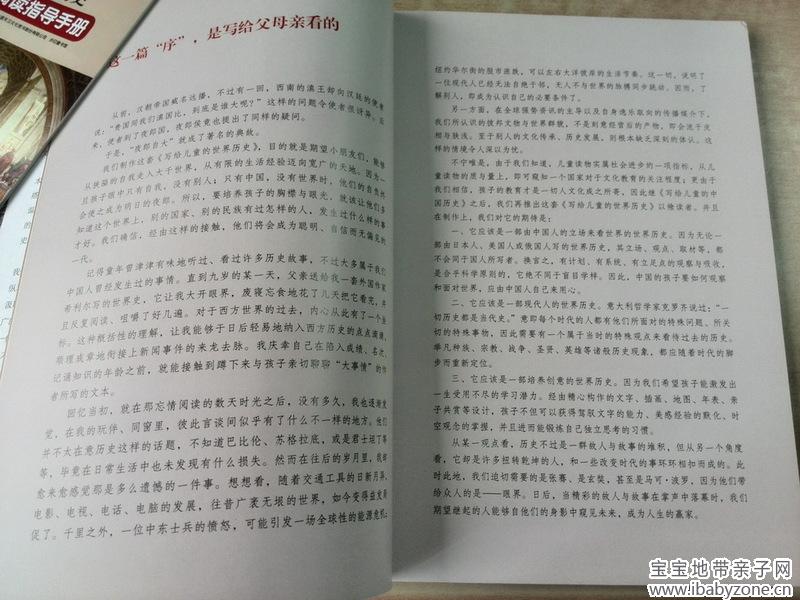 阅读指导手册
这一篇“序”，是写给父母亲看的
从前，汉朝帝国威名远播，不过有一回，西南的滇王却向汉廷的使者
说：“贵国同我们滇国比，到底是谁大呢？”这样的问题令使者很讶异。后
来，使者到了夜郎国，夜郎侯竟也提出了同样的疑问。
于是，“夜郎自大”就成了著名的典故。
我们制作这套《写给儿童的世界历史》，目的就是期望小朋友们，能够
从狭隘的自我走入大千世界，从有限的生活经验迈向宽广的天地。因为一
且孩子眼中只有自我，没有别人；只有中国，没有世界时，他们的自然
会使之成为明日的夜郎。所以，要培养孩子的胸襟与眼光，就该让他们多
知道这个世界上，别的国家、别的民族有过怎样的人，发生过什么样的事
才好。我们确信，经由这样的接触，他们将会成为聪明、自信而无偏见的
一代。
记得童年曾津津有味地听过、看过许多历史故事，不过大多属于我们
中国人曾经发生过的事情。直到九岁的某一天，父亲送给我一套外国作家
希利尔写的世界史，它让我大开眼界，废寝忘食地花了几天把它看完，并
且反复阅读、咀嚼了好几遍。对于西方世界的过去，内心从此有了一个主
标。这种概括性的理解，让我能够于日后轻易地纳入西方历史的点点滴滴，
顺理成章地衔接上新闻事件的来龙去脉。我庆幸自己在陷入成绩、名次、
记诵知识的年龄之前，就能接触到蹲下来与孩子亲切聊聊“大事情”的作
者所写的文本。
回忆当初，就在那忘情阅读的数天时光之后，没有多久，我也逐渐发
觉，在我的玩伴、同窗里，彼此言谈间似乎有了什么不一样的地方。他们
并不太在意历史这样的话题，不知道巴比伦、苏格拉底，或是君士坦丁等
等，毕竟在日常生活中也未发现有什么损失。然而在往后的岁月里，我却
愈来愈感觉那是多么遗憾的一件事。想想看，随着交通工具的日新月异，
电影、电视、电话、电脑的发展，往昔广袤无垠的世界，如今变得益发局
促了。千里之外，一位中东士兵的愤怒，可能引发一场全球性的能源危机；
纽约华尔街的股市涨跌，可以左右大洋彼岸的生活节奏。这一切，说明了
一位现代人已经无法自绝于邻，无人不与世界的脉搏同步跳动。因而，了
解别人，即成为认识自己的必要条件了。
另一方面，在全球强势资讯的主导以及自身逸乐取向的传播媒介下，
我们所认识的彼邦文物与世界群貌，不是刻意经营后的产物，即会流于皮
相与肤浅。至于别人的文化传承、历史发展，则根本缺乏深刻的体认。这
样的情境令人深以为忧。
不宁唯是，由于我们知道，儿童读物实属社会进步的一项指标，从儿
童读物的质与量上，即可窥知一个国家对于文化教育的关注程度；更由于
我们相信，孩子的教育才是一切人文化成之所寄，因此继《写给儿童的中
国历史》之后，我们再推出这套《写给儿童的世界历史》以飨读者。并且
在制作上，我们对它的期待是：
一、它应该是一部由中国人的立场来看世界的世界历史。因为无论一
部由日本人、美国人或俄国人写的世界历史，其立场、观点、取材等，都
不会同于国人所写者。换言之，有计划、有系统、有立足点的观察与吸收，
是合乎科学原则的，它绝不同于盲目学样。因此，中国的孩子要如何观察
和面对世界，应由中国人自己来用心。
二、它应该是一部现代人的世界历史。意大利哲学家克罗齐说过：“一
切历史都是当代史。”意即每个时代的人都有他们所面对的特殊问题、所关
切的特殊事物，因此需要有一个属于当时的特殊观点来看待过去的历史。
举凡种族、宗教、战争、圣贤、英雄等诸般历史现象，都应随着时代的脚
步而重新定位。
三、它应该是一部培养创意的世界历史。因为我们希望孩子能激发出
一生受用不尽的学习潜力。经由精心构作的文字、插画、地图、年表、亲
子共赏等设计，孩子不但可以获得驾驭文字的能力、美感经验的默化、时
空观念的掌握，并且进而能锻炼自己独立思考的习惯。
从某一观点看，历史不过是一群故人与故事的堆积，但从另一个角度
看，它却是许多扭转乾坤的人，和一些改变时代的事环环相扣而成的。此
时此地，我们迫切需要的是张骞、是玄奘，甚至是马可·波罗，因为他们带
给众人的是——眼界。日后，当精彩的故人与故事在掌声中落幕时，我们
期望继起的人能够自他们的身影中窥见未来，成为人生的赢家。
宝宝地带亲子网
www.ibabyzone.cn